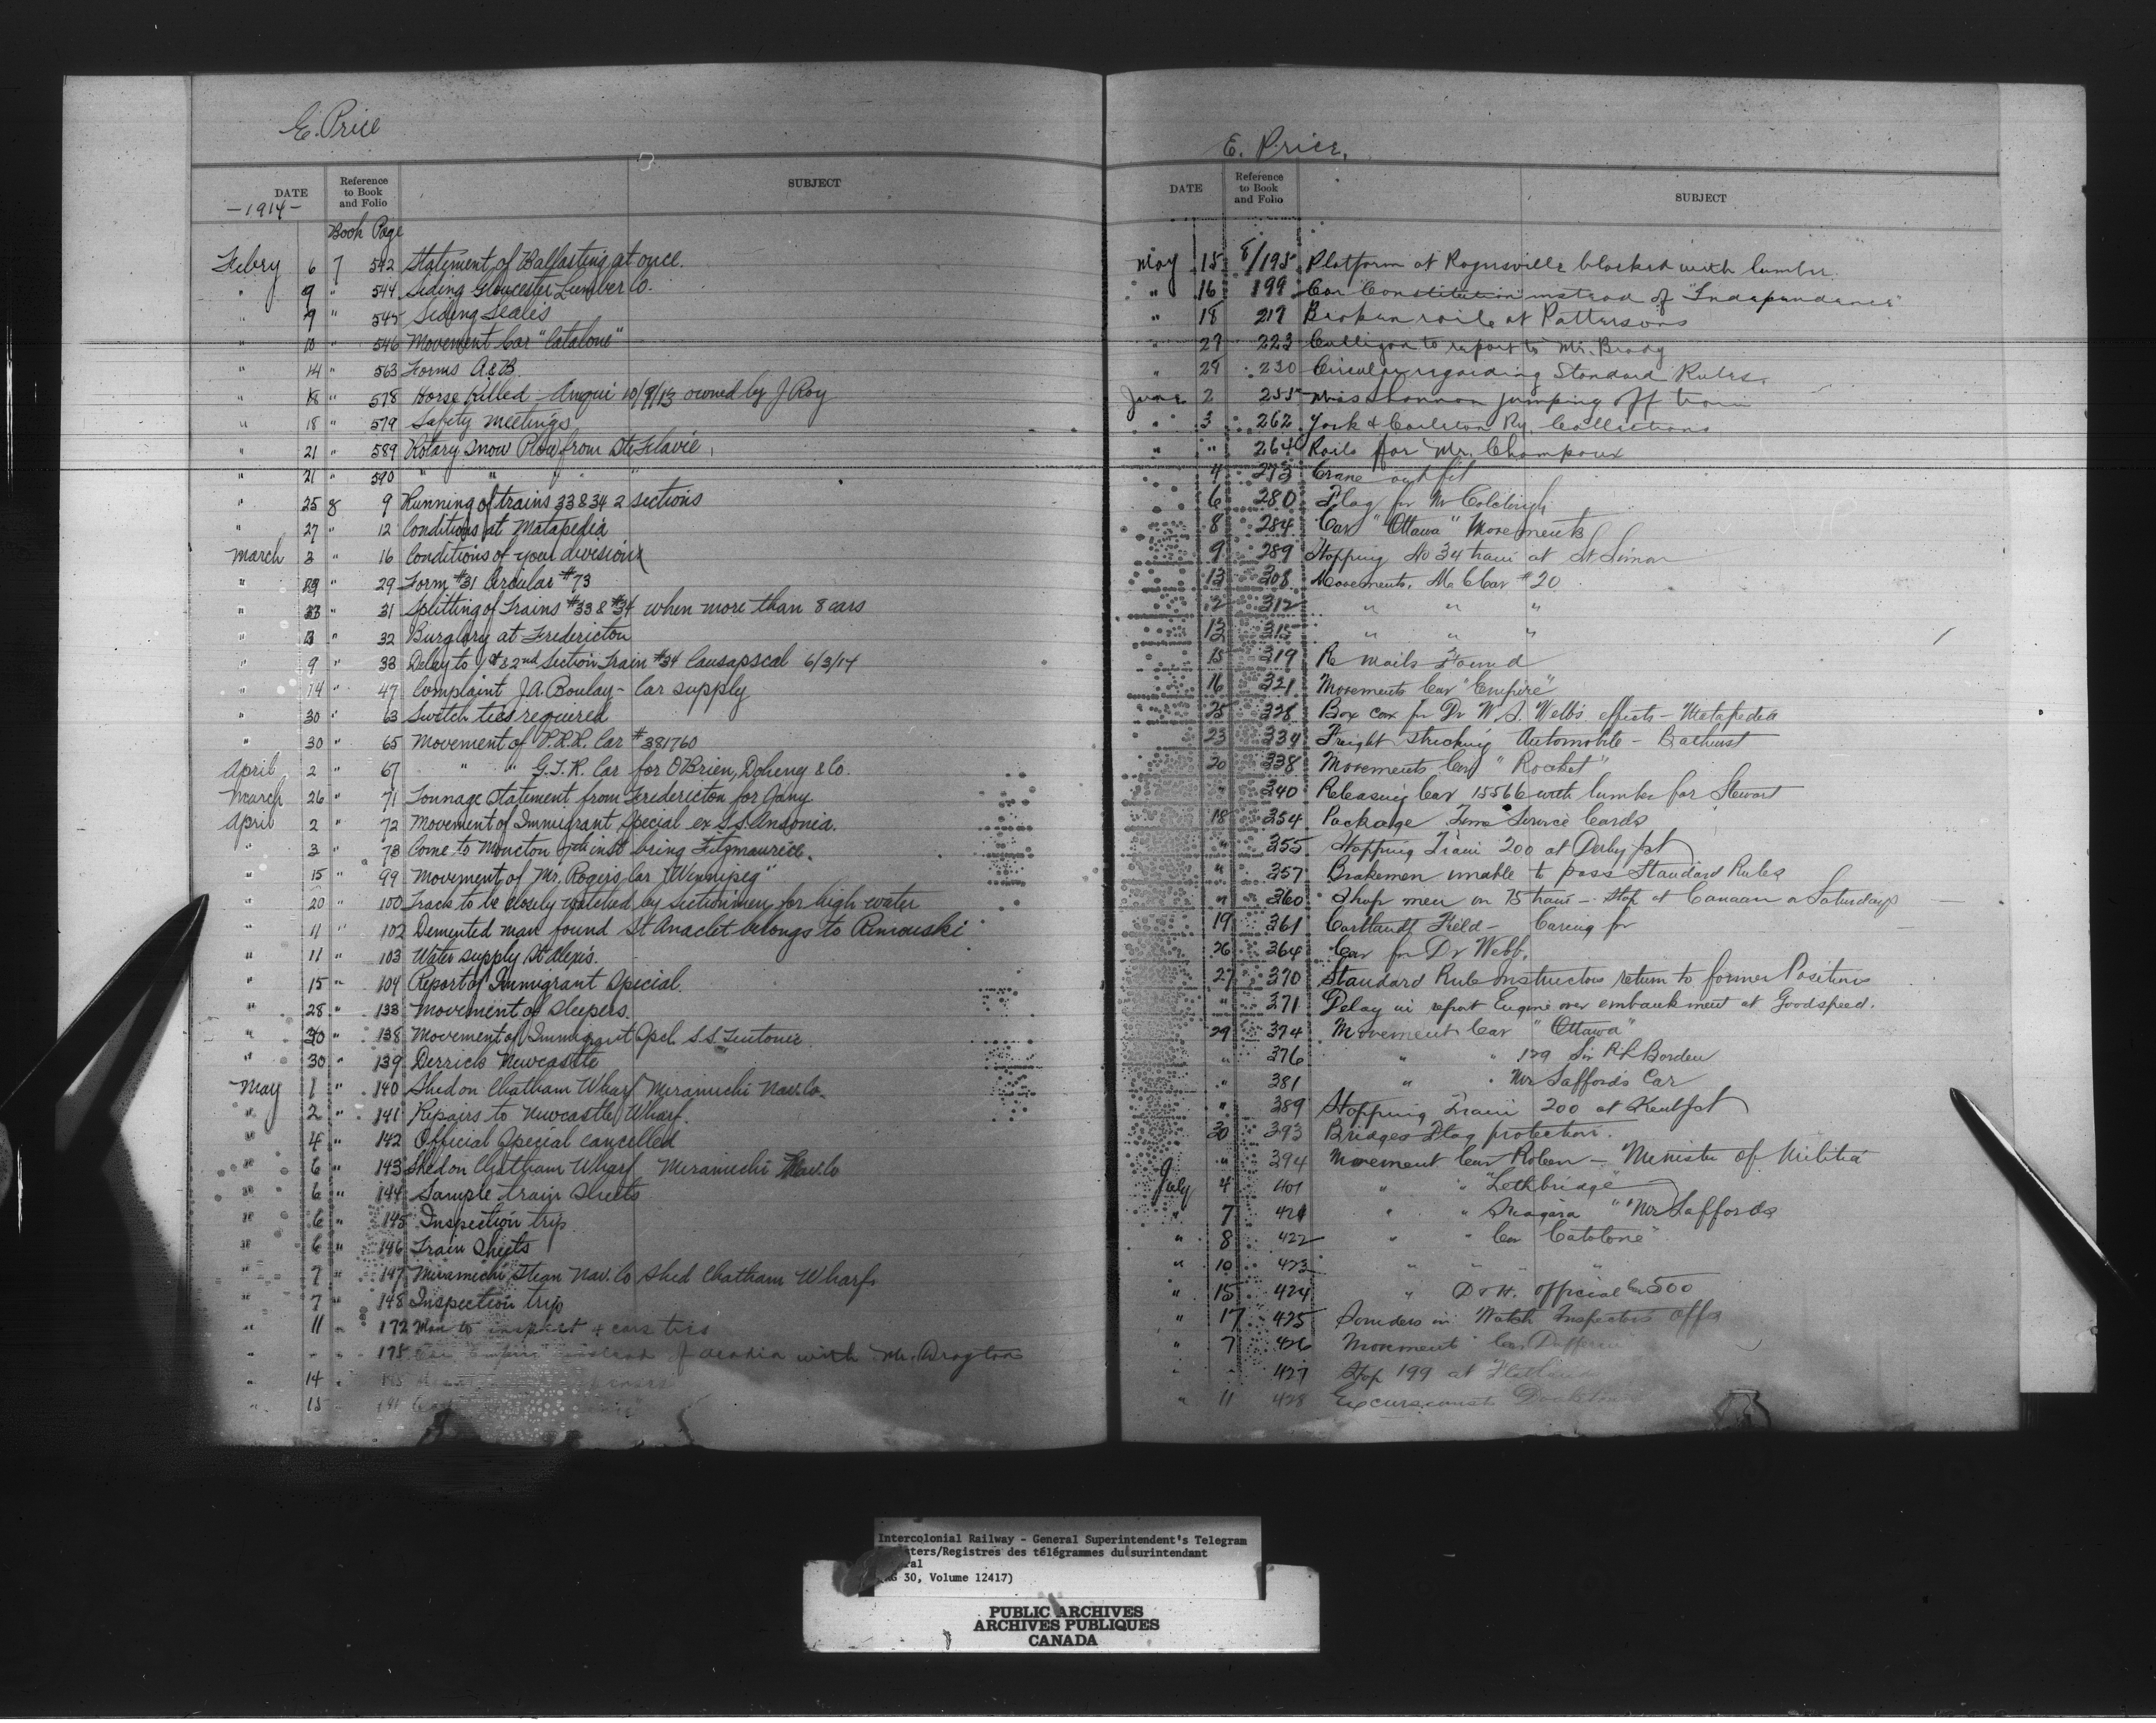 E. Price
DATE
Reference to Book and Folio
SUBJECT
-1914-
Book Page
Febry 6 7 542 Statement of Ballasting at once.
" 9 " 544 Siding Gloucester Lumber Co.
" 9 " 545 Siding Seales
" 10 " 546 Movement Car "Catalone"
" 14 " 563 Forms A & B.
" 18 " 578 Horse Killed Amqui 10/9/13 owned by J Roy
" 18 " 579 Safety Meetings
" 21 " 589 Rotary Snow Plow from Ste Flavie
" 21 " 590 " " " "
" 25 8 9 Running of trains 33 & 34 2 sections
" 27 " 12 Conditions at Matapedia
March 3 " 16 Conditions of your division
" " 29 Form #31 Circular #73
" " 31 Splitting of Trains #33 & #34 when more than 8 cars
" " 32 Burglary at Fredericton
" 9 " 33 Delay to 1st & 2nd Section Train #34 Causapscal 6/3/14
" 14 " 47 Complaint J.A. Boulay - Car supply
" 30 " 63 Switch ties required
" 30 " 65 Movement of P.R.R. Car #381760
April 2 " 67 " " G.T.R. Car for OBrien, Doheny & Co.
March 26 " 71 Tonnage Statement from Fredericton for Jany
April 2 " 72 Movement of Immigrant Special ex S.S. Ansonia.
" 3 " 73 Come to Moncton 7th inst bring Fitzmaurice.
" 15 " 99 Movement of Mr. Rogers Car "Winnipeg"
" 20 " 100 Track to be closely watched by sectionmen for high water
" 11 " 102 Demented man found St Anaclet belongs to Rimouski
" 11 " 103 Water supply St Alexis.
" 15 " 104 Report of Immigrant Special.
" 28 " 133 Movement of Sleepers.
" 30 " 138 Movement of Immigrant Spcl S.S. Teutonic
" 30 " 139 Derrick Newcastle
May 1 " 140 Shed on Chatham Wharf Miramichi Nav. Co.
" 2 " 141 Repairs to Newcastle Wharf.
" 4 " 142 Official Special cancelled
" 6 " 143 Shed on Chatham Wharf Miramichi Nav. Co
" 6 " 144 Sample train Sheets
" 6 " 145 Inspection trip
" 6 " 146 Train Sheets
" 7 " 147 Miramichi Steam Nav. Co Shed Chatham Wharf
" 7 " 148 Inspection trip
" 11 " 172 Man to inspect + cars ties
" " " 178 Car "Empire" instead of Acadia with Mr. Drayton
" 14 "
" 15 " 191
E. Price.
DATE
Reference to Book and Folio
SUBJECT
May 15 8/195 Platform at Rogersville blocked with lumber.
" 16 199 Car "Constitution" instead of "Independence"
" 18 217 Broken rails at Pattersons
" 27 223 Culligan to report to Mr. Brady
" 29 230 Circular regarding Standard Rules.
June 2 255 Miss Shannon jumping off train
" 3 262 York & Carleton Ry. Collections
" " 264 Rails for Mr. Champoux
4 273 Crane outfit
6 280 Flag for Mr
8 284 Car "Ottawa" Movements
9 289 Stopping No 34 train at St Simon
13 308 Movements, M C Car #20
12 312 " " "
13 315 " " "
15 319 Re mails Found
16 321 Movements Car "Empire"
25 328 Box car for Dr W.S. Webb's effects - Matapedia
23 334 Freight striking Automobile - Bathurst
20 338 Movements Car "Rocket"
" 340 Releasing Car 15566 with lumber for Stewart
18 354 Package Time Service Cards
" 355 Stopping Train 200 at Derby Jct
" 357 Brakemen unable to pass Standard Rules
" 360 Shop men on 75 train - Stop at Canaan on Saturdays
19 361 Cortlandt Field - Caring for
26 364 Car for Dr Webb.
27 370 Standard Rule Instructors return to former Positions
" 371 Delay in report Engine over embankment at Goodspeed.
29 374 Movement Car "Ottawa"
" 376 " " 129 Sir R L Borden
" 381 " " Mr Saffords Car
" 389 Stopping Train 200 at Kent Jct
30 393 Bridges Flag protection.
" 394 Movement Car Roleen - Minister of Militia
July 4 401 " " "Lethbridge"
" 7 421 " " Niagara " "Mr Saffords
" 8 422 " " Car Catalone"
" 10 423 " " " "
" 15 424 " D & H. official Car 500
" 17 425 Sounders in Watch Inspectors Offs
" 7 426 Movement Car Dufferin
" " 427 Stop 199 at Flatlands
" 11 428 Excursionists
Intercolonial Railway - General Superintendent's Telegram
Registres des télégrammes du surintendant
30, Volume 12417)
PUBLIC ARCHIVES
ARCHIVES PUBLIQUES
CANADA